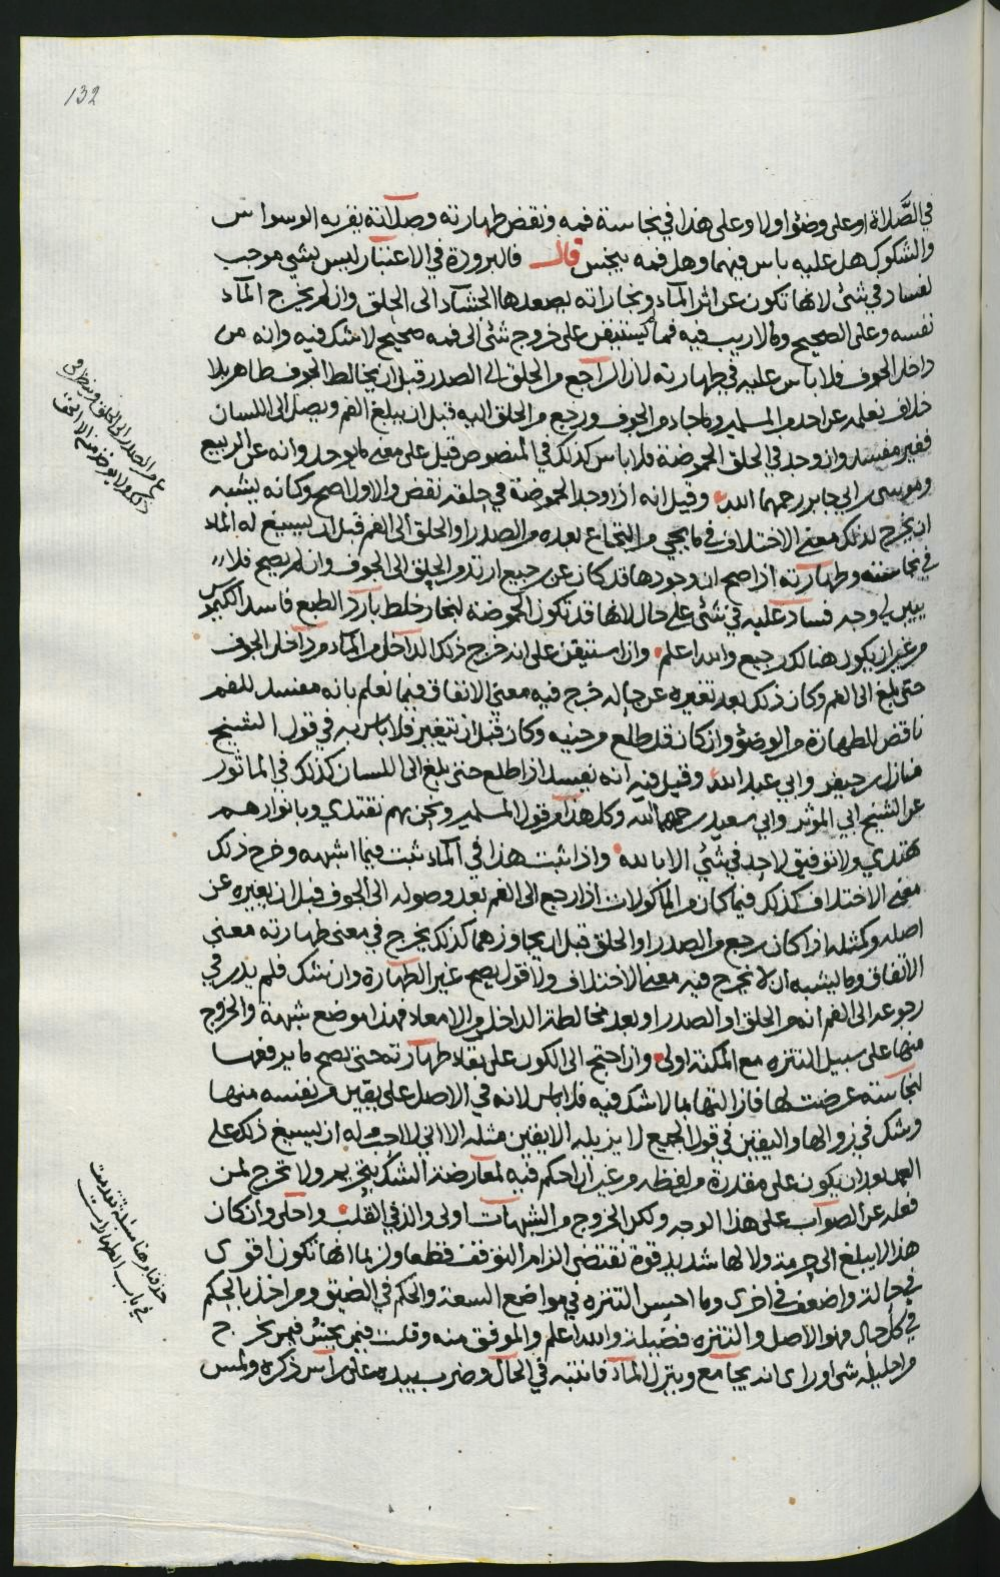 132
في الصَّلاة او على وضؤ اولا وعلى هذا في نجاسة فمه ونقض طهارته وصلاته يقربه الوسواس
والشكوك هل عليه باس فيهما وهل فمه ينجس قال فالبرودة في الاعتبار ليس بشي موجب
لفساد في شئ لانها تكون عن اثر المآء وبخاراته يصعدها الجشآء الى الحلق وان لم يخرج المآء
نفسه وعلى الصحيح ومالاريب فيه فما لم يستيقن على خروج شئ الى فمه صحيح لاشك فيه وانه من
داخل الجوف فلا باس عليه في طهارته لان الراجع من الحلق الى الصدر قبل ان يخالط الجوف طاهر بلا
خلاف نعلمه عن احد من المسلمين وماجاء من الجوف ورجع من الحلق اليه قبل ان يبلغ الفم ويصل الى اللسان
فغير مفسد وان وجد في الحلق الحموضة فلا باس كذلك في المنصوص قيل على معنى مايوجد وانه عن الربيع
وموسى بن ابي جابر رحمهما الله وقيل انه اذا وجد الحموضة في حلقه نقض والاول اصح وكانه يشبه
ان يخرج لذلك معنى الاختلاف في مايجي من النخاع بعده من الصدر او الحلق الى الفم قبل ان يسيغ له المآء
في نجاسته وطهارته اذا صح ان وجودها قد كان عن رجيع ارتد من الحلق الى الجوف وان لم يصح فلا
يبين لي وجه فساد عليه في شئ على حال لانها قد تكون الحموضة لبخار خلط بارد الطبع فاسد الكيموس
من غير ان يكون هنالك رجيع والله اعلم وان استيقن على انه خرج ذلك الداخل من المآء من داخل الجوف
حتى بلغ الى الفم وكان ذلك بعد تغيره عن حاله خرج فيه معنى الاتفاق فيما نعلم بانه مفسد للفم
ناقض للطهارة من الوضؤ وان كان قد طلع من حينه وكان قبل ان يتغير فلا باس به في قول الشيخ
منازل بن جيفر وابي عبد الله وقيل فيه انه يفسد اذا طلع حتى بلغ الى اللسان كذلك في الماثور
عن الشيخ ابي المؤثر وابي سعيد رحمهما الله وكل هذا من قول المسلمين ونحن بهم نقتدي وبانوارهم
نهتدي ولا توفيق لاحد في شئ الا بالله واذا ثبت هذا في المآء ثبت فيما اشبهه وخرج ذلك
معنى الاختلاف كذلك فيما كان من الماكولات اذا رجع الى الفم بعد وصوله الى الجوف قبل ان يغيره عن
اصله وكمثله اذا كان رجع من الصدر او الحلق قبل ان يجاوزهما كذلك يخرج في معنى طهارته معنى
الاتفاق ومايشبه ان لا يخرج فيه معنى الاختلاف ولا قول يصح غير الطهارة وان شك فلم يدر في
رجوعه الى الفم انه من الحلق او الصدر او بعد مخالطة الداخل من الامعاء فهذا موضع شبهة والخروج
منها على سبيل التنزه مع المكنة اولى وان احتج الى الكون على بقاء طهارته حتى يصح ما يرفعها
لنجاسته عرضت لها فازالتها بما لا شك فيه فلا باس لانه في الاصل على يقين من نفسه منها
وشك في زوالها واليقين في قول الجميع لا يزيله الا يقين مثله الا اني لا احب له ان يسيغ ذلك على
العمد بعد ان يكون على مقدرة من لفظه من غير ان احكم فيه لمعارضة الشك بتحريم ولا تخرج لمن
فعله عن الصواب على هذا الوجه ولكن الخروج من الشبهات اولى والذ في القلب واحلى وان كان
هذا لا يبلغ الى حرمة ولا لها شديد قوة تقتضي الزام التوقف قطعا ولربما انها تكون اقوى
في حالة واضعف في اخرى وما احسن التنزه في مواضع السعة والحكم في الضيق ومن اخذ بالحكم
في كل حال فهو الاصل والتنزه فضيلة والله اعلم والموفق منه وقلت فيمن يجس فيمن يخرج
من احليله شئ او راى انه يجامع وينزل المآء فانتبه في الحال وضرب بيده على راس ذكره ولمس
من الصدر الى الحلق وينظر في
ذلك ولا يوخذ منه الا الحق
في باب الطهارات